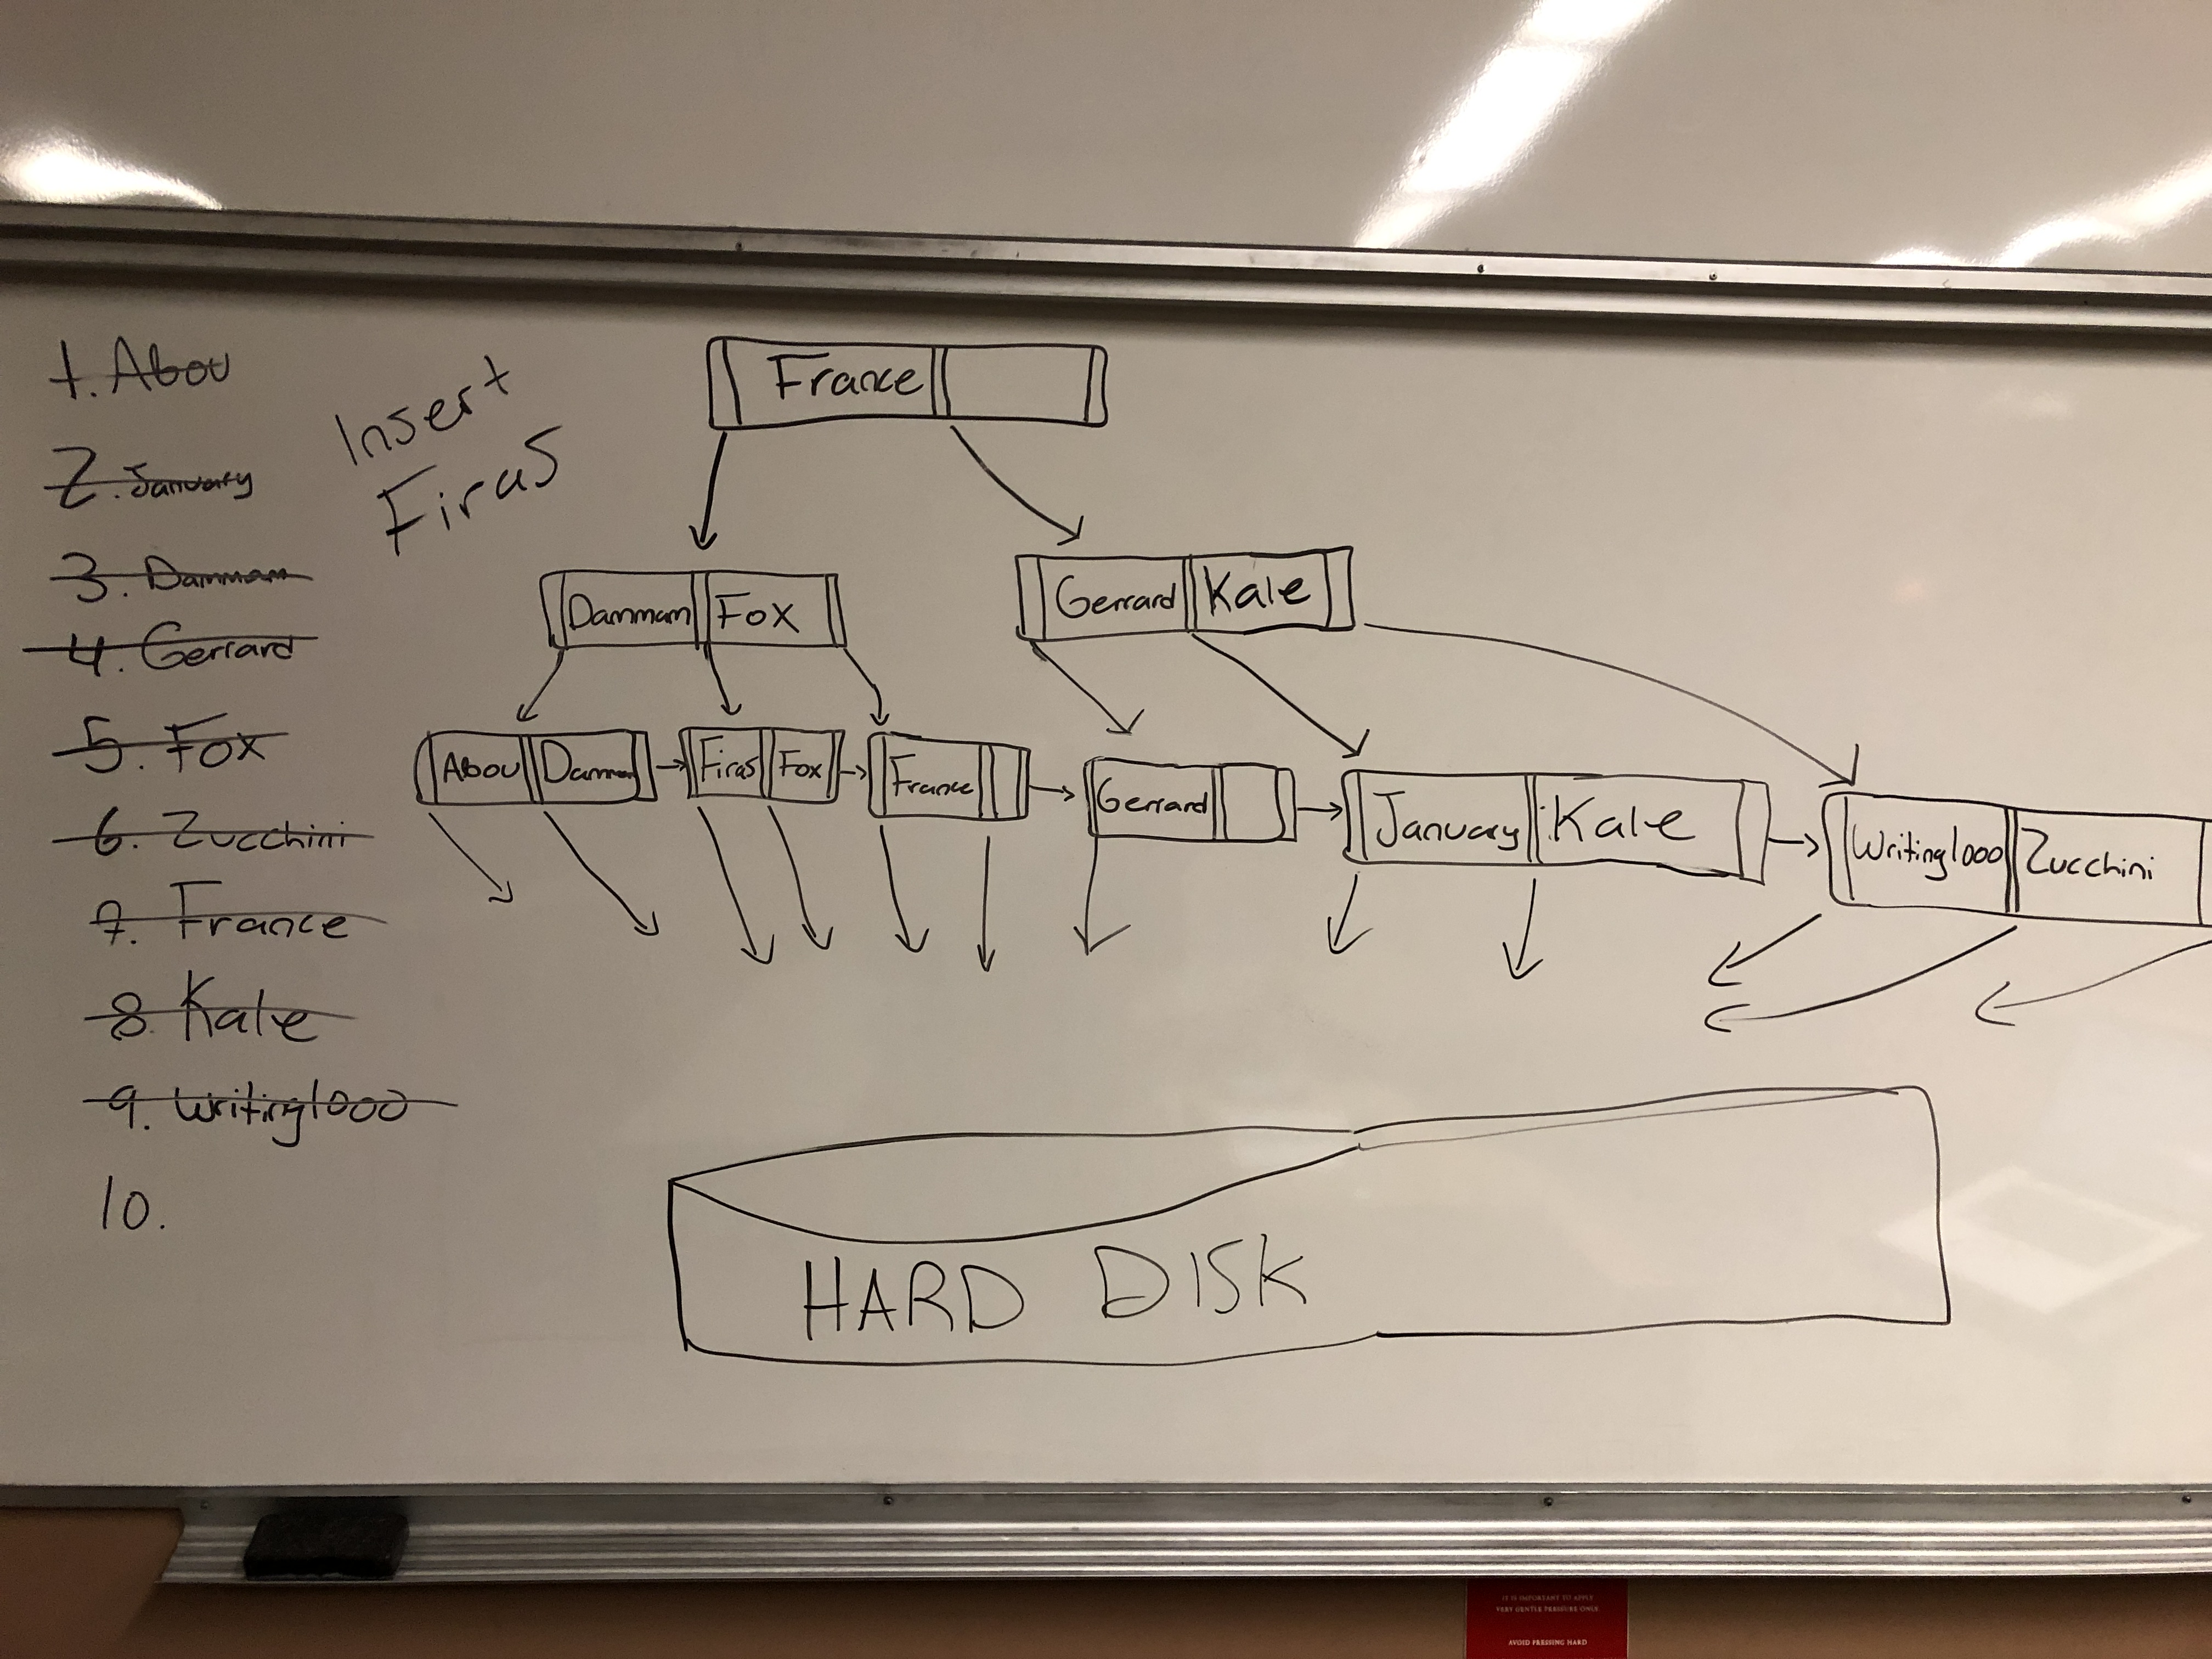 1. Abou
2. January
3. Dammam
4. Gerrard
5. Fox
6. Zucchini
7. France
8. Kale
9. Writing1000
10.
Insert
Firas
France
Dammam Fox
Gerrard Kale
Abou Dammam
Firas Fox
France
Gerrard
January Kale
Writing1000 Zucchini
HARD DISK
IT IS IMPORTANT TO APPLY
VERY GENTLE PRESSURE ONLY.
AVOID PRESSING HARD